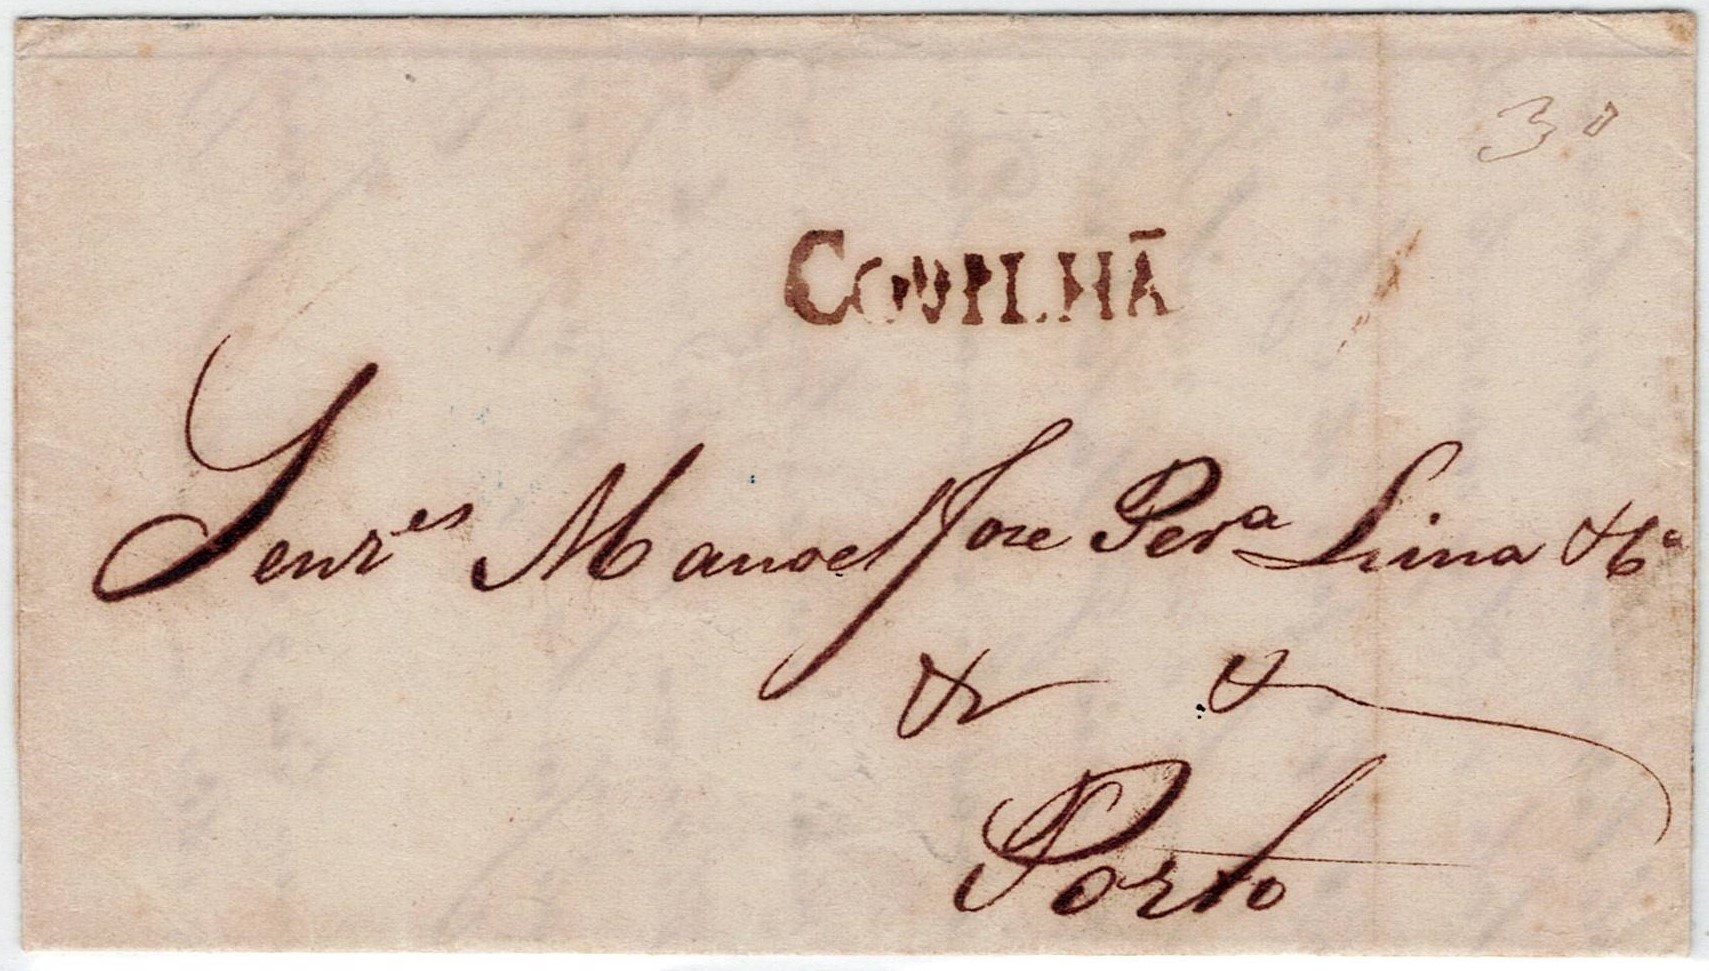 30
COVILHÃ
Senr.es Manoel Joze Perª Lima & Cª
& &
Porto